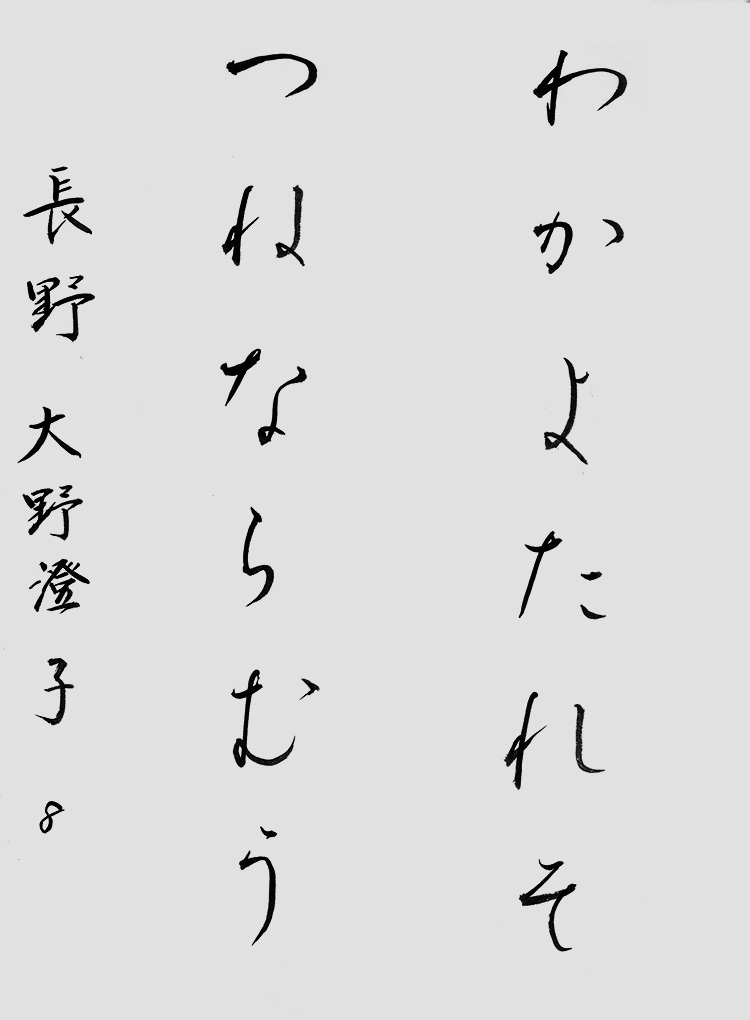 わかよたれそ
つねならむう
長野 大野澄子 8